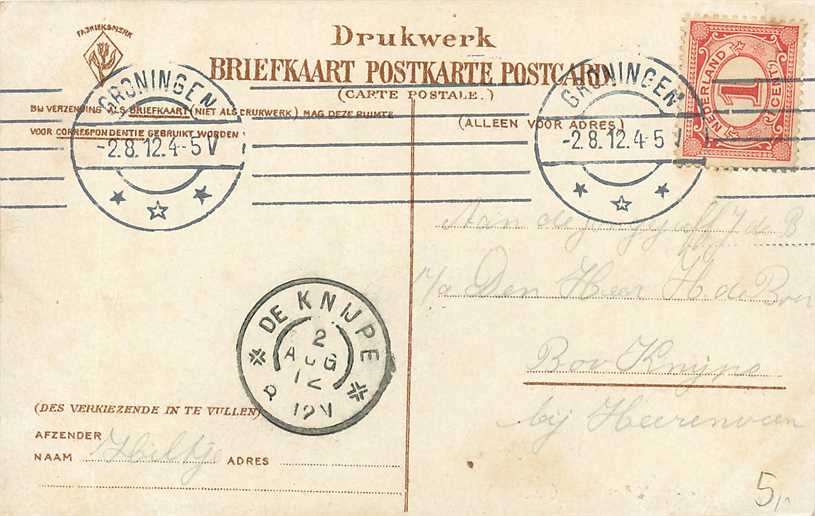 FABRIEKSMERK
Drukwerk
BRIEFKAART POSTKARTE POSTCARD
(CARTE POSTALE.)
BIJ VERZENDING ALS BRIEFKAART (NIET ALS DRUKWERK) MAG DEZE RUIMTE
VOOR CORRESPONDENTIE GEBRUIKT WORDEN
(ALLEEN VOOR ADRES)
GRONINGEN
-2.8.12.4-5 V
GRONINGEN
-2.8.12.4-5
NEDERLAND
1
(1 CENT)
Aan de J de B
p/a Den Heer H de Boer
Bov Knijpe
bij Heerenveen
DE KNIJPE
2
AUG
12
12V
(DES VERKIEZENDE IN TE VULLEN)
AFZENDER
NAAM Hiltje ADRES
5,-